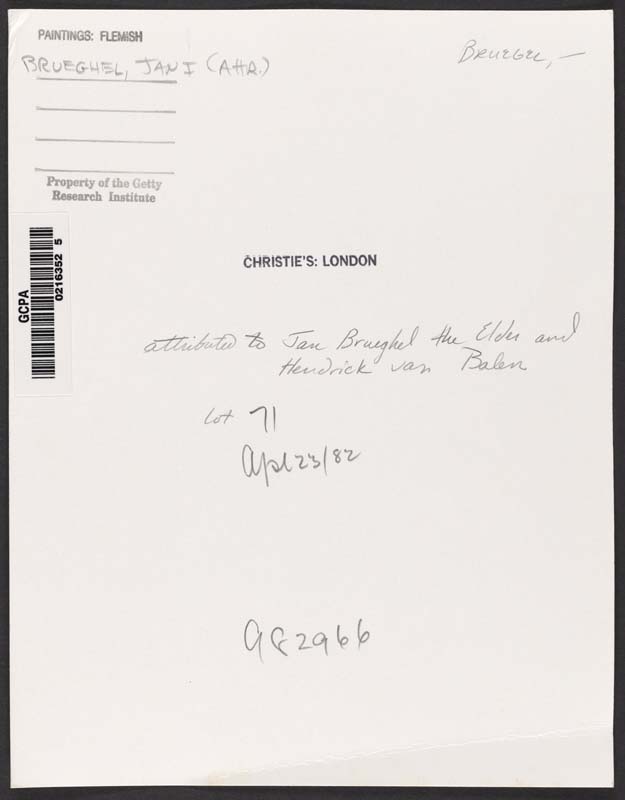 PAINTINGS: FLEMISH
BRUEGHEL, JAN I (ATTR.)
BRUEGEL, —
Property of the Getty
Research Institute
GCPA
0216352 5
CHRISTIE'S: LONDON
attributed to Jan Brueghel the Elder and
Hendrick van Balen
Lot 71
Apl 23/82
982966